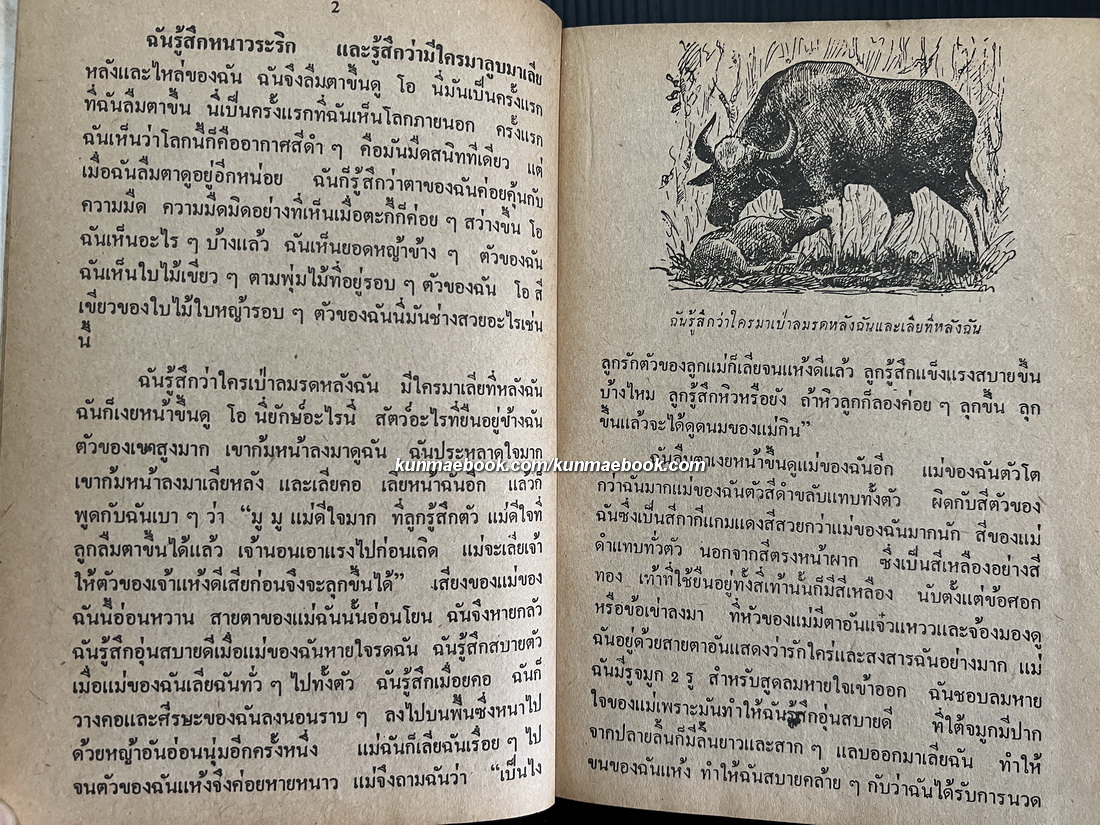 2
ฉันรู้สึกหนาวระริก และรู้สึกว่ามีใครมาลูบมาเลีย
หลังและไหล่ของฉัน ฉันจึงลืมตาขึ้นดู โอ นี่มันเป็นครั้งแรก
ที่ฉันลืมตาขึ้น นี่เป็นครั้งแรกที่ฉันเห็นโลกภายนอก ครั้งแรก
ฉันเห็นว่าโลกนี้ก็คืออากาศสีดำ ๆ คือมันมืดสนิททีเดียว แต่
เมื่อฉันลืมตาดูอยู่อีกหน่อย ฉันก็รู้สึกว่าตาของฉันค่อยคุ้นกับ
ความมืด ความมืดมิดอย่างที่เห็นเมื่อตะกี้ก็ค่อย ๆ สว่างขึ้น โอ
ฉันเห็นอะไร ๆ บ้างแล้ว ฉันเห็นยอดหญ้าข้าง ๆ ตัวของฉัน
ฉันเห็นใบไม้เขียว ๆ ตามพุ่มไม้ที่อยู่รอบ ๆ ตัวของฉัน โอ สี
เขียวของใบไม้ใบหญ้ารอบ ๆ ตัวของฉันนี่มันช่างสวยอะไรเช่น
นี้
ฉันรู้สึกว่าใครเป่าลมรดหลังฉัน มีใครมาเลียที่หลังฉัน
ฉันก็เงยหน้าขึ้นดู โอ นี่ยักษ์อะไรนี่ สัตว์อะไรที่ยืนอยู่ข้างฉัน
ตัวของเขาสูงมาก เขาก้มหน้าลงมาดูฉัน ฉันประหลาดใจมาก
เขาก้มหน้าลงมาเลียหลัง และเลียคอ เลียหน้าฉันอีก แล้วก็
พูดกับฉันเบา ๆ ว่า “มู มู แม่ดีใจมาก ที่ลูกรู้สึกตัว แม่ดีใจที่
ลูกลืมตาขึ้นได้แล้ว เจ้านอนเอาแรงไปก่อนเถิด แม่จะเลียเจ้า
ให้ตัวของเจ้าแห้งดีเสียก่อนจึงจะลุกขึ้นได้” เสียงของแม่ของ
ฉันนี้อ่อนหวาน สายตาของแม่ฉันนั้นอ่อนโยน ฉันจึงหายกลัว
ฉันรู้สึกอุ่นสบายดีเมื่อแม่ของฉันหายใจรดฉัน ฉันรู้สึกสบายตัว
เมื่อแม่ของฉันเลียฉันทั่ว ๆ ไปทั้งตัว ฉันรู้สึกเมื่อยคอ ฉันก็
วางคอและศีรษะของฉันลงนอนราบ ๆ ลงไปบนพื้นซึ่งหนาไป
ด้วยหญ้าอันอ่อนนุ่มอีกครั้งหนึ่ง แม่ฉันก็เลียฉันเรื่อย ๆ ไป
จนตัวของฉันแห้งจึงค่อยหายหนาว แม่จึงถามฉันว่า “เป็นไง
ฉันรู้สึกว่าใครมาเป่าลมรดหลังฉันและเลียที่หลังฉัน
ลูกรักตัวของลูกแม่ก็เลียจนแห้งดีแล้ว ลูกรู้สึกแข็งแรงสบายขึ้น
บ้างไหม ลูกรู้สึกหิวหรือยัง ถ้าหิวลูกก็ลองค่อย ๆ ลุกขึ้น ลุก
ขึ้นแล้วจะได้ดูดนมของแม่กิน”
kunmaebook.com/kunmaebook.com
ฉันลืมตาเงยหน้าขึ้นดูแม่ของฉันอีก แม่ของฉันตัวโต
กว่าฉันมากแม่ของฉันตัวสีดำขลับแทบทั้งตัว ผิดกับสีตัวของ
ฉันซึ่งเป็นสีกากีแกมแดงสีสวยกว่าแม่ของฉันมากนัก สีของแม่
ดำแทบทั่วตัว นอกจากสีตรงหน้าผาก ซึ่งเป็นสีเหลืองอย่างสี
ทอง เท้าที่ใช้ยืนอยู่ทั้งสี่เท้านั้นก็มีสีเหลือง นับตั้งแต่ข้อศอก
หรือข้อเข่าลงมา ที่หัวของแม่มีตาอันแจ๋วแหววและจ้องมองดู
ฉันอยู่ด้วยสายตาอันแสดงว่ารักใคร่และสงสารฉันอย่างมาก แม่
ฉันมีรูจมูก 2 รู สำหรับสูดลมหายใจเข้าออก ฉันชอบลมหาย
ใจของแม่เพราะมันทำให้ฉันรู้สึกอุ่นสบายดี ที่ใต้จมูกมีปาก
จากปลายลิ้นก็มีลิ้นยาวและสาก ๆ แลบออกมาเลียฉัน ทำให้
ขนของฉันแห้ง ทำให้ฉันสบายคล้าย ๆ กับว่าฉันได้รับการนวด